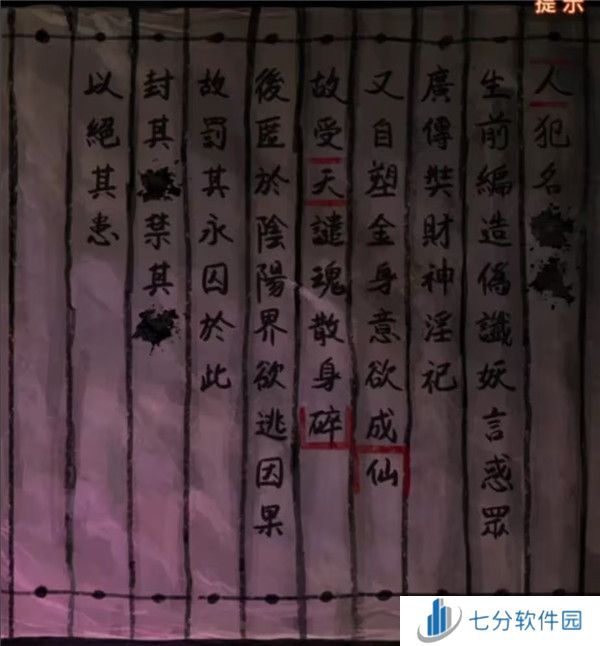 提示
人犯名
生前編造偽讖妖言惑眾
廣傳奘財神淫祀
又自塑金身意欲成仙
故受天譴魂散身碎
後匿於陰陽界欲逃因果
故罰其永囚於此
封其禁其
以絕其患
七分软件园